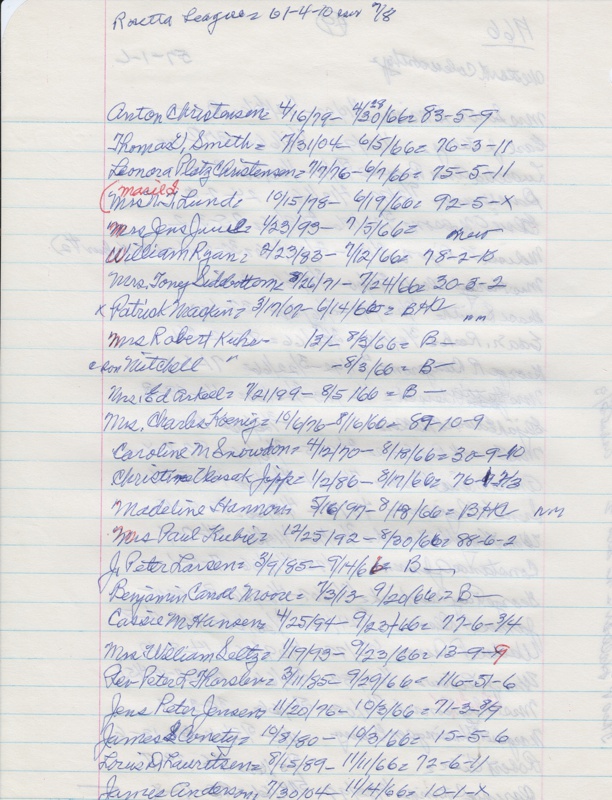 Rosetta League = 61-4-10 7/8
Anton Christensen = 4/16/79 - 4/30/66 = 83-5-9
28
Thomas Smith = 7/31/04 - 6/5/66 = 76-3-11
Leonora Platz Christensen = 7/7/76 - 6/7/66 = 75-5-11
Mrs Lund = 10/15/78 - 6/19/66 = 92-5-X
Mrs Jens Juul = 4/23/93 - 7/5/66 =
William Ryan = 2/23/83 - 7/12/66 = 78-2-
Mrs. Tony Sidbottom 26/71 - 7/24/66 = 30-3-2
x Patrick = 3/17/07 - 6/14/66 = B nm
Mrs Robert 131 - 8/3/66 = B -
& son Mitchell " - 8/3/66 = B -
Mrs. Ed = 7/21/99 - 8/5/66 = B -
Mrs. Charles Koenig = 10/6/76 - 8/16/66 = 89-10-9
Caroline M Snowdon = 4/2/70 - 8/18/66 = 30-9-10
Christine Jipp = 1/2/86 - 8/17/66 = 76-
Madeline Hannon 5/16/97 - 8/18/66 = B nm
Mrs Paul Kubie = 12/25/92 - 8/30/66 = 88-6-2
J. Peter Larsen = 3/9/85 - 9/14/66 = B -
Benjamin Moore = 7/3/13 - 9/20/66 = B -
Cassie M. Hansen = 4/25/94 - 9/23/66 = 77-6-3/4
Mrs William Seltz = 1/19/93 - 9/23/66 = 13-9-9
Rev Peter L. Thorslev = 3/11/85 - 9/29/66 = 116-51-6
Jens Peter Jensen 11/20/76 - 10/2/66 = 71-3-
James Conety = 10/8/80 - 10/3/66 = 15-5-6
Louis D. Lauritsen = 8/15/89 - 11/11/66 = 72-6-11
James Anderson, 7/30/04 - 11/14/66 = 10-1-X